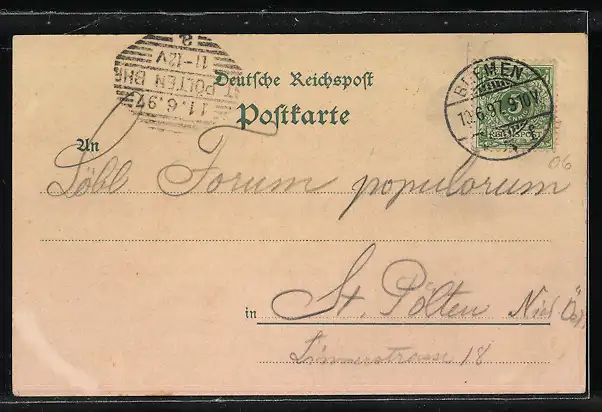 ST. PÖLTEN BHF
11.6.97
11-12V
a
Deutsche Reichspost
Postkarte
BREMEN
10.6.97. 9-10V.
REICHSPOST
An
Löbl. Forum popularum
06
in St. Pölten Nied. Öst.
18